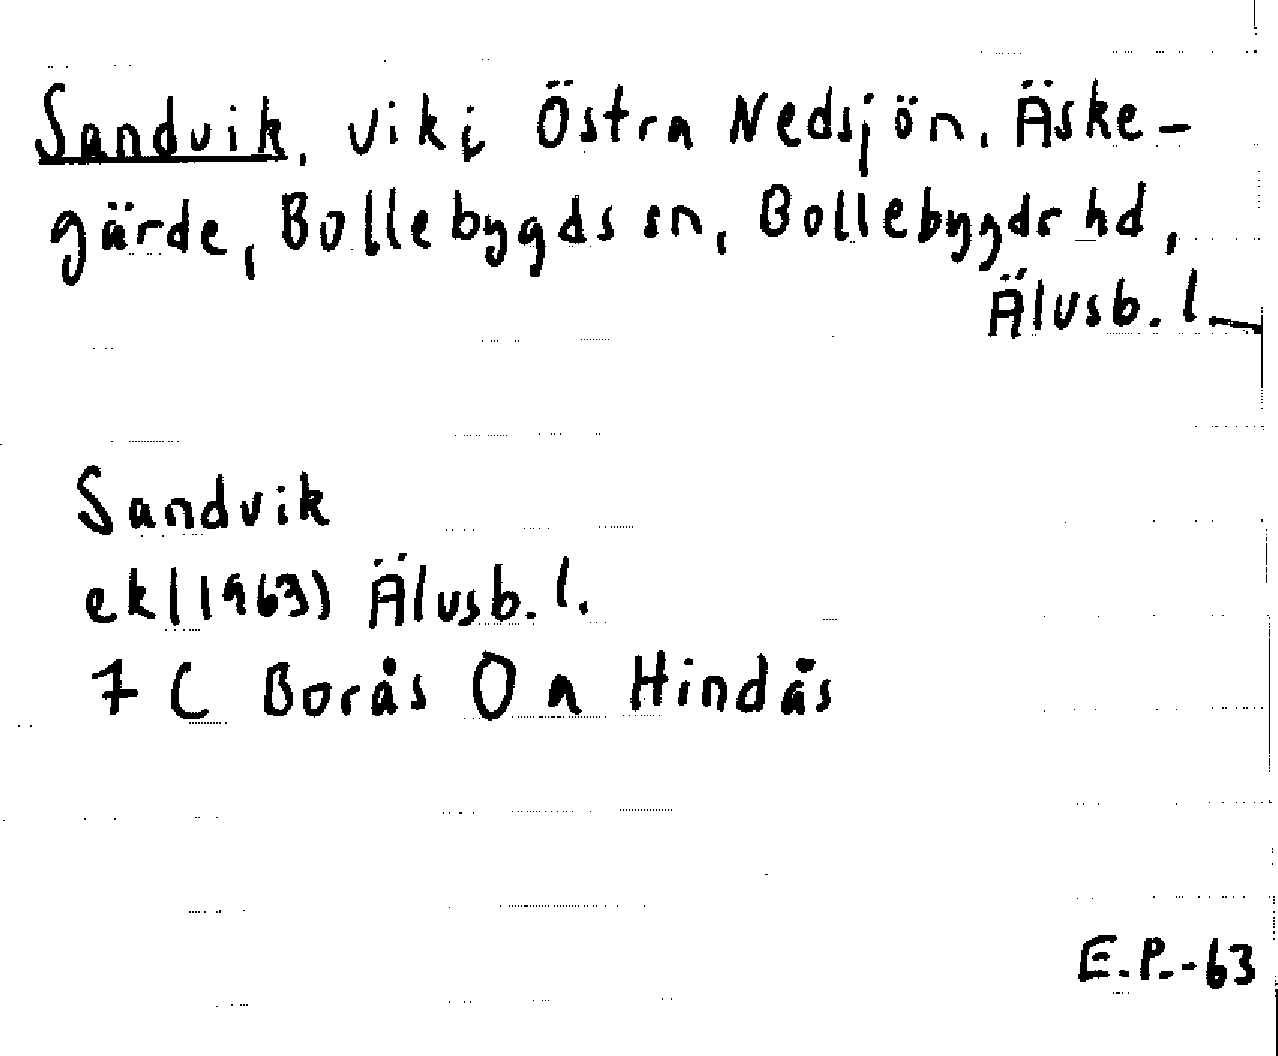 Sandvik, vik i Östra Nedsjön, Äske-
gärde, Bollebygds sn, Bollebygds hd,
Älvsb. l.
Sandvik
ek (1963) Älvsb. l.
7 C Borås O a Hindås
E.P.-63